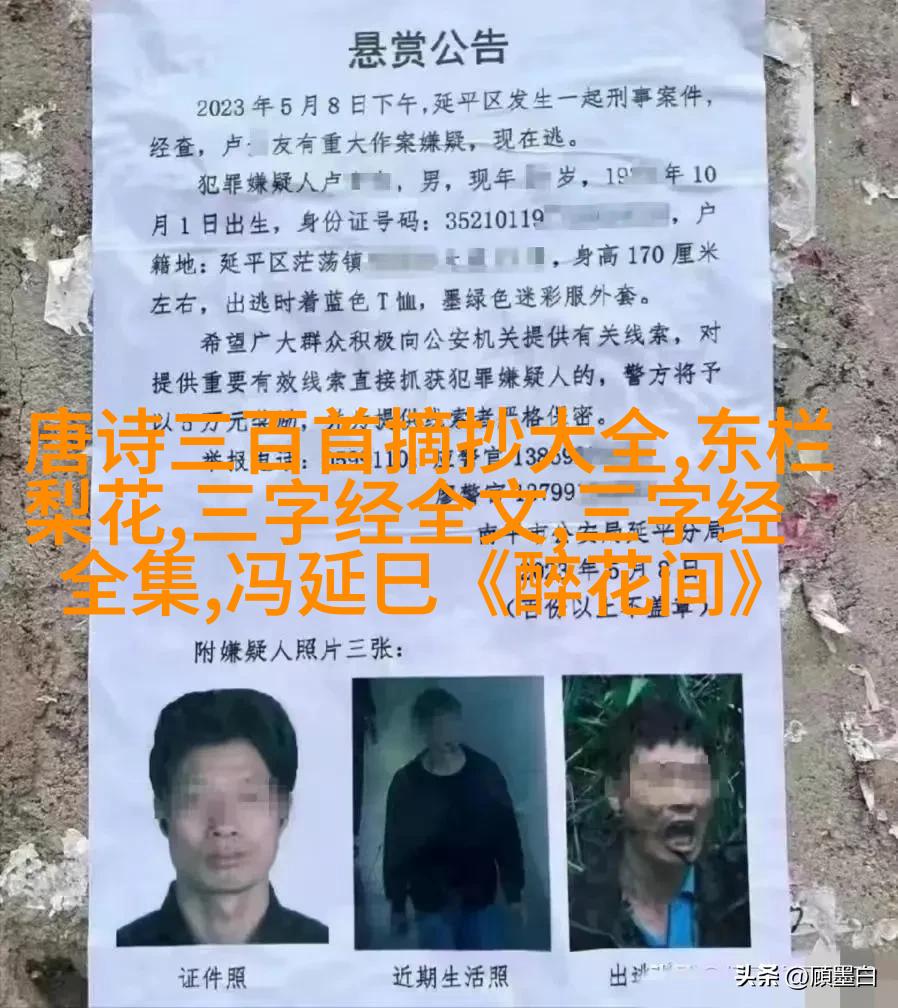 悬赏公告
2023年5月8日下午,延平区发生一起刑事案件,
经查,卢 友有重大作案嫌疑,现在逃。
犯罪嫌疑人卢 ,男,现年 岁,19 年10
月1日出生,身份证号码:35210119 ,户
籍地:延平区茫荡镇 ,身高170厘米
左右,出逃时着蓝色T恤,墨绿色迷彩服外套。
希望广大群众积极向公安机关提供有关线索,对
提供重要有效线索直接抓获犯罪嫌疑人的,警方将予
以5万元奖励, 提供线索者严格保密。
唐诗三百首摘抄大全,东栏
举报电话: 警官1386
梨花,三字经全文,三字经
廖警官 13799
南平市公安局延平分局
全集,冯延巳《醉花间》
2023年5月8日
附嫌疑人照片三张:
证件照
近期生活照
出逃
头条 @顾墨白